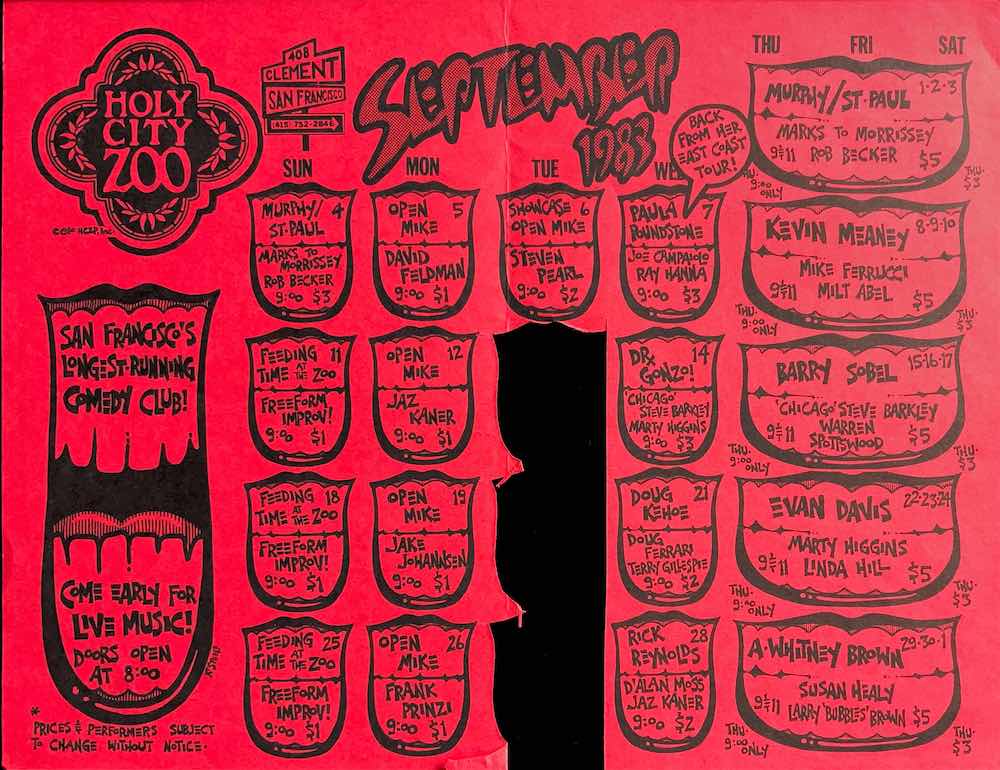 HOLY
CITY
ZOO
408
CLEMENT
SAN FRANCISCO
(415) 752-2846
SEPTEMBER
1983
BACK
FROM HER
EAST COAST
TOUR!
SUN
MON
TUE
THU
FRI
SAT
MURPHY/ 4
ST. PAUL
MARKS TO
MORRISSEY
ROB BECKER
9:00 $3
OPEN 5
MIKE
DAVID
FELDMAN
9:00 $1
SHOWCASE 6
OPEN MIKE
STEVEN
PEARL
9:00 $2
PAULA 7
POUNDSTONE
JOE CAMPAIOLO
RAY HANNA
9:00 $3
MURPHY/ST. PAUL 1-2-3
MARKS TO MORRISSEY
9 & 11 ROB BECKER $5
THU.
9:00
ONLY
THU.
$3
KEVIN MEANEY 8-9-10
MIKE FERRUCCI
9 & 11 MILT ABEL $5
THU.
9:00
ONLY
THU.
$3
FEEDING 11
TIME AT THE ZOO
FREEFORM
IMPROV!
9:00 $1
OPEN 12
MIKE
JAZ
KANER
9:00 $1
DR. 14
GONZO!
'CHICAGO'
STEVE BARKLEY
MARTY HIGGINS
9:00 $3
BARRY SOBEL 15-16-17
'CHICAGO' STEVE BARKLEY
9 & 11 WARREN
SPOTTSWOOD $5
THU.
9:00
ONLY
THU.
$3
FEEDING 18
TIME AT THE ZOO
FREEFORM
IMPROV!
9:00 $1
OPEN 19
MIKE
JAKE
JOHANNSEN
9:00 $1
DOUG 21
KEHOE
DOUG
FERRARI
TERRY GILLESPIE
9:00 $2
EVAN DAVIS 22-23-24
MARTY HIGGINS
9 & 11 LINDA HILL $5
THU.
9:00
ONLY
THU.
$3
FEEDING 25
TIME AT THE ZOO
FREEFORM
IMPROV!
9:00 $1
OPEN 26
MIKE
FRANK
PRINZI
9:00 $1
RICK 28
REYNOLDS
D'ALAN MOSS
JAZ KANER
9:00 $2
A. WHITNEY BROWN 29-30-1
SUSAN HEALY
9 & 11 LARRY 'BUBBLES' BROWN $5
THU.
9:00
ONLY
THU.
$3
SAN FRANCISCO'S
LONGEST-RUNNING
COMEDY CLUB!
COME EARLY FOR
LIVE MUSIC!
DOORS OPEN
AT 8:00
*
PRICES & PERFORMERS SUBJECT
TO CHANGE WITHOUT NOTICE.